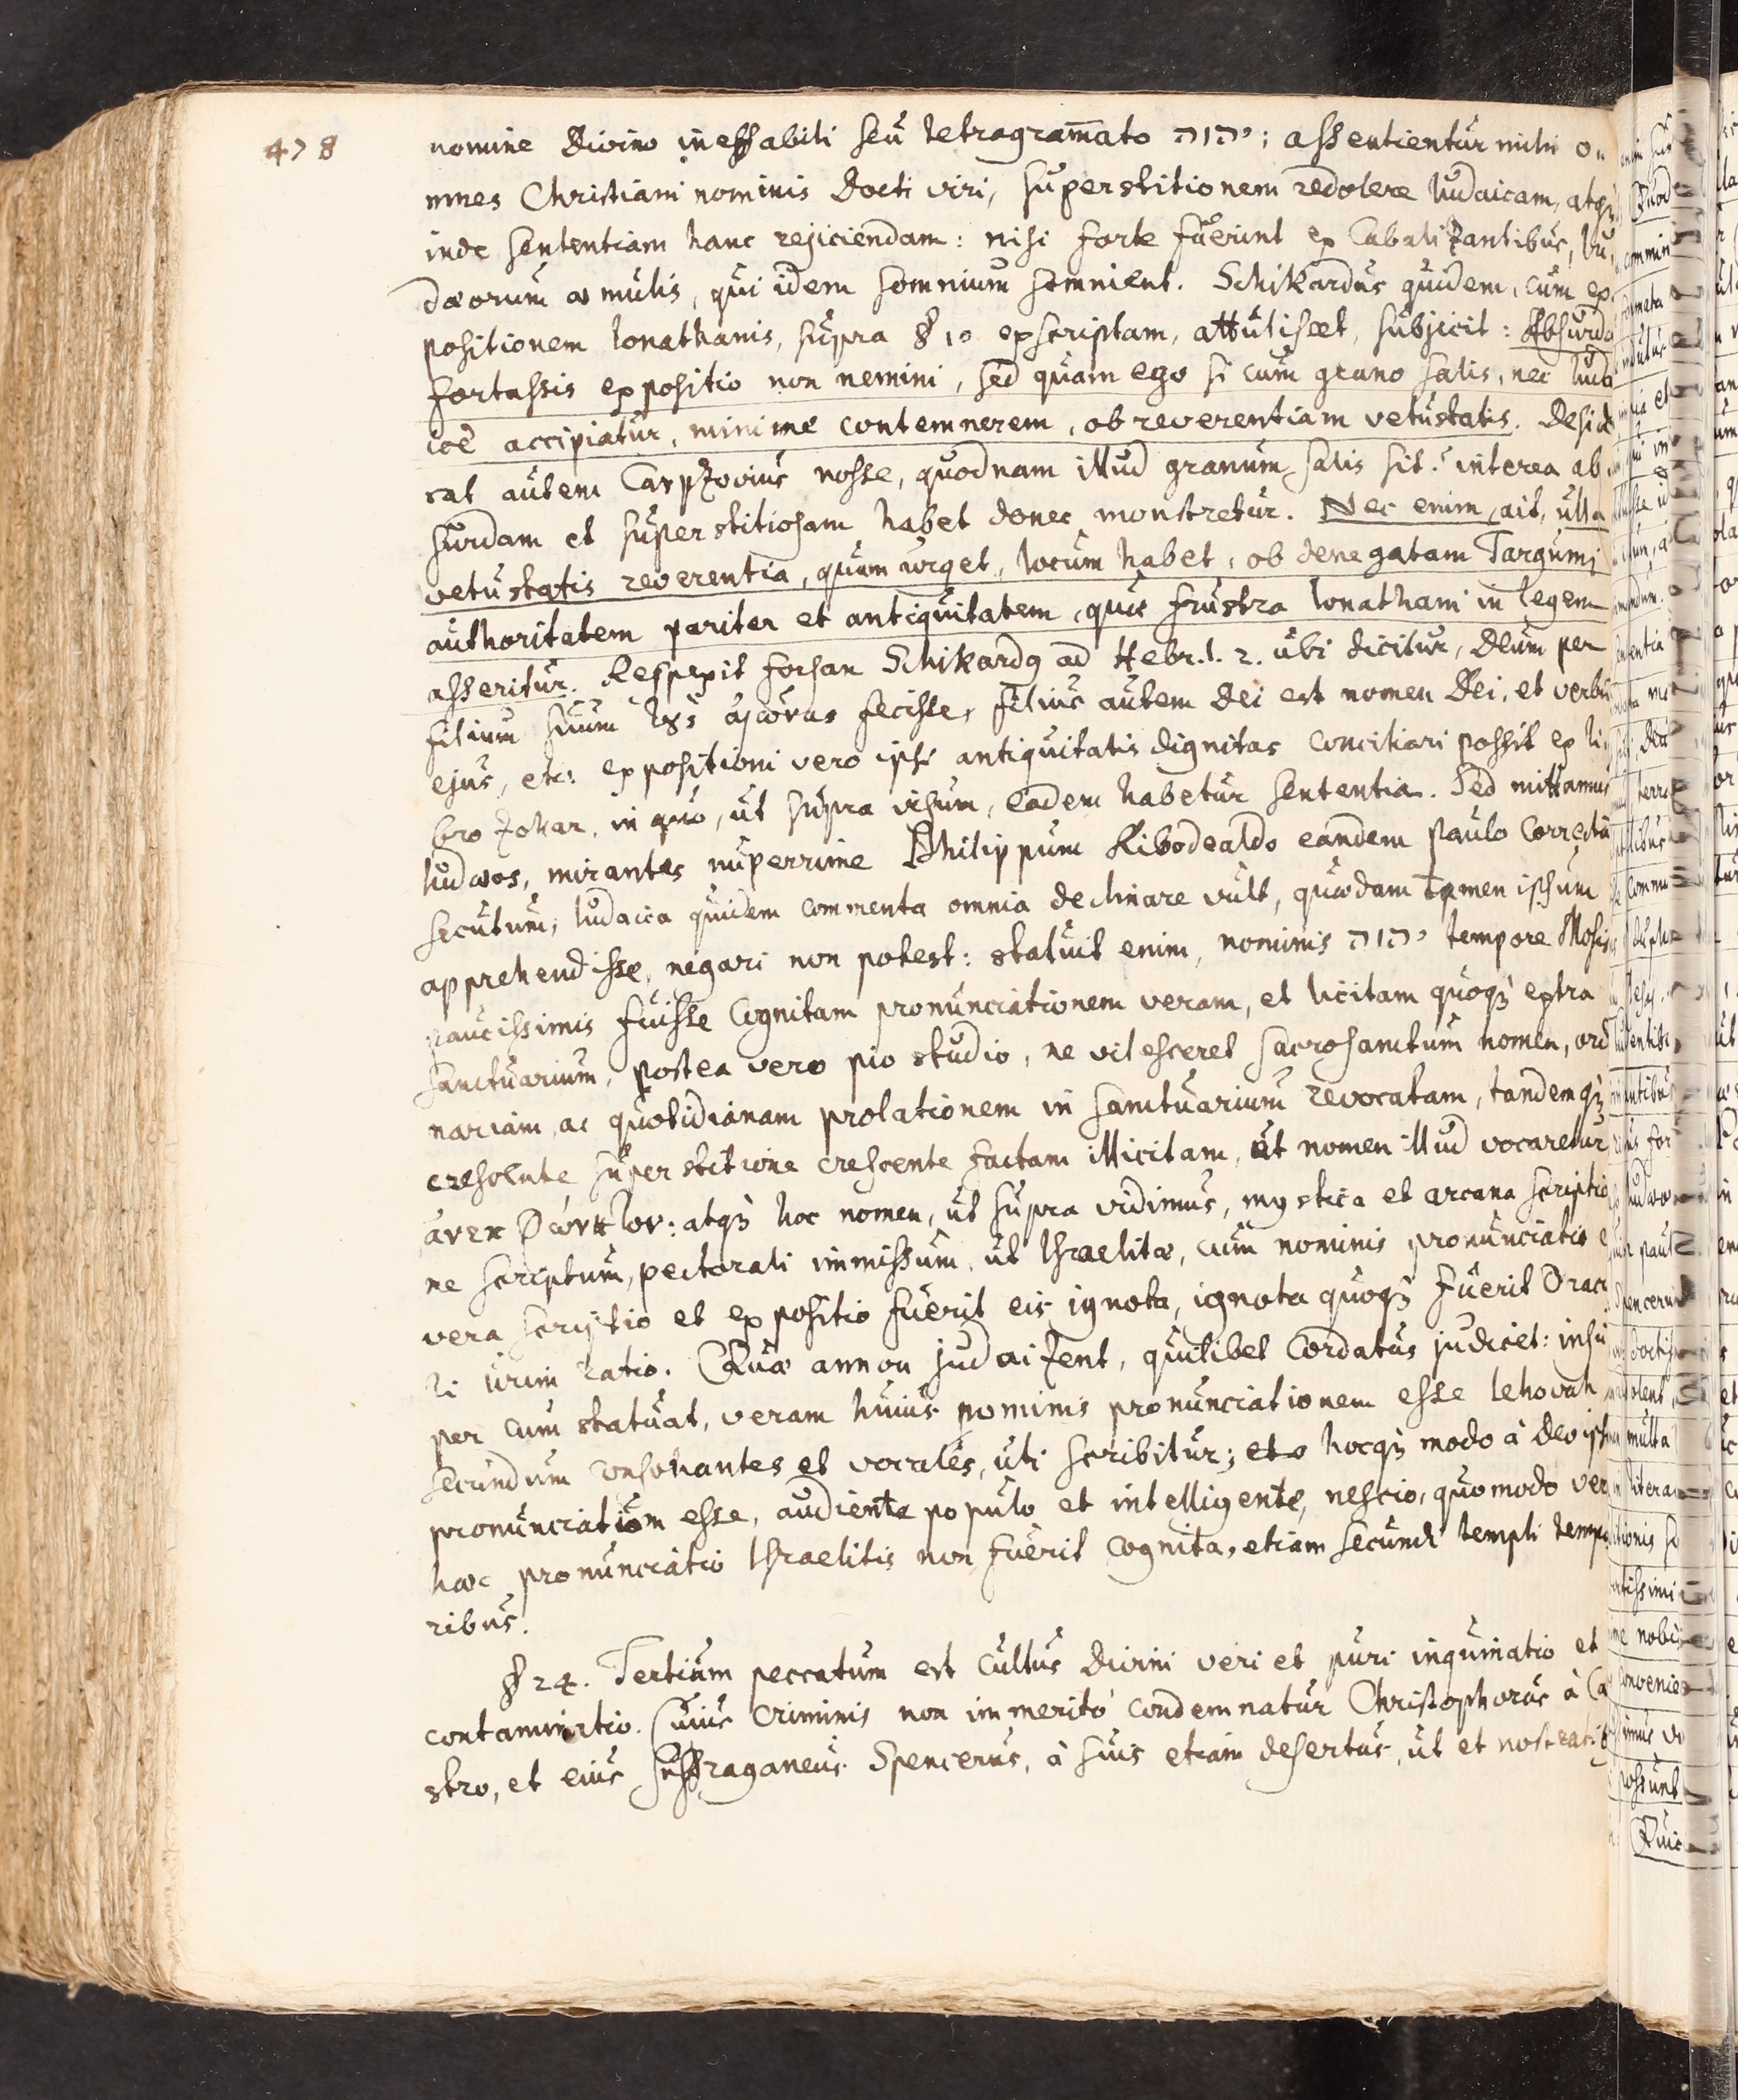 478
nomine Divino ineffabili seu tetragram̄ato יהוה; assentientur mihi o-
mnes Christiani nominis Docti viri, superstitionem redolere Iudaicam, atq́;
inde sententiam hanc rejiciendam: nisi forte fuerint ex Cabalizantibus, Iu-
dæorum æmulis, qui idem somnium somnient. Schikardus quidem, cum ex-
positionem Ionathanis, supra § 10 exscriptam, attulisset, subjicit: Absurda
fortassis expositio non nemini, sed quam ego si cum grano salis, nec Iudai
icè accipiatur, minime contemnerem, ob reverentiam vetustatis. Deside
rat autem Carpzovius nosse, quodnam illud granum salis sit? interea ab-
surdam et superstitiosam habet donec monstretur. Nec enim, ait, ulla
vetustatis reverentia, quam urget, locum habet, ob denegatam Targumi
authoritatem pariter et antiquitatem, quæ frustra Ionathani in legem
asseritur. Respexit forsan Schikardg ad Hebr. 1. 2. ubi dicitur, Deum per
filium suum τ̀ȣς ἀιῶνας fecisse, filius autem Dei est nomen Dei, et verbū
ejus, etc: expositioni vero ipsi antiquitatis dignitas conciliari possit ex li-
bro Zohar, in quo, ut supra visum, eadem habetur sententia. Sed mittamus
Iudæos, mirantes nuperrime Philippum Ribodealdo eandem paulo correctā
secutum; Iudaica quidem commenta omnia declinare vult, quædam tamen ipsum
apprehendisse, negari non potest: statuit enim, nominis יהוה tempore Mosis
paucissimis fuisse cognitam pronunciationem veram, et licitam quoq́; extra
sanctuarium, postea vero pio studio, ne vilesceret sacrosanctum nomen, ordi
nariam, ac quotidianam prolationem in sanctuarium revocatam, tandemq́;
superstitione crescente factam illicitam, ut nomen illud vocaretur
ἀνεκφώνητον: atq́; hoc nomen, ut supra vidimus, mystica et arcana scriptio
ne scriptum, pectorali immissum, ut Israelitæ, cum nominis pronunciatio e
vera scriptio et expositio fuerit eis ignota, ignota quoq́; fuerit Oracu
li Urim ratio. Quæ annon judaizent, quilibet Cordatus judicet: insu
per cum statuat, veram huius nominis pronunciationem esse Iehovah
secundum consonantes et vocales, uti scribitur; hocq́; modo à Deo ipso
pronunciatum esse, audiente populo et intelligente, nescio, quomodo vera
hæc pronunciatio Israelitis non fuerit cognita, etiam secundi templi tempo
ribus.
§ 24. Tertium peccatum est Cultus Divini veri et puri inquinatio et
contaminatio. Cuius criminis non immeritò condemnatur Christophorus à Ca
stro, et eius suffraganeus Spencerus, à suis etiam desertus, ut et nostratib